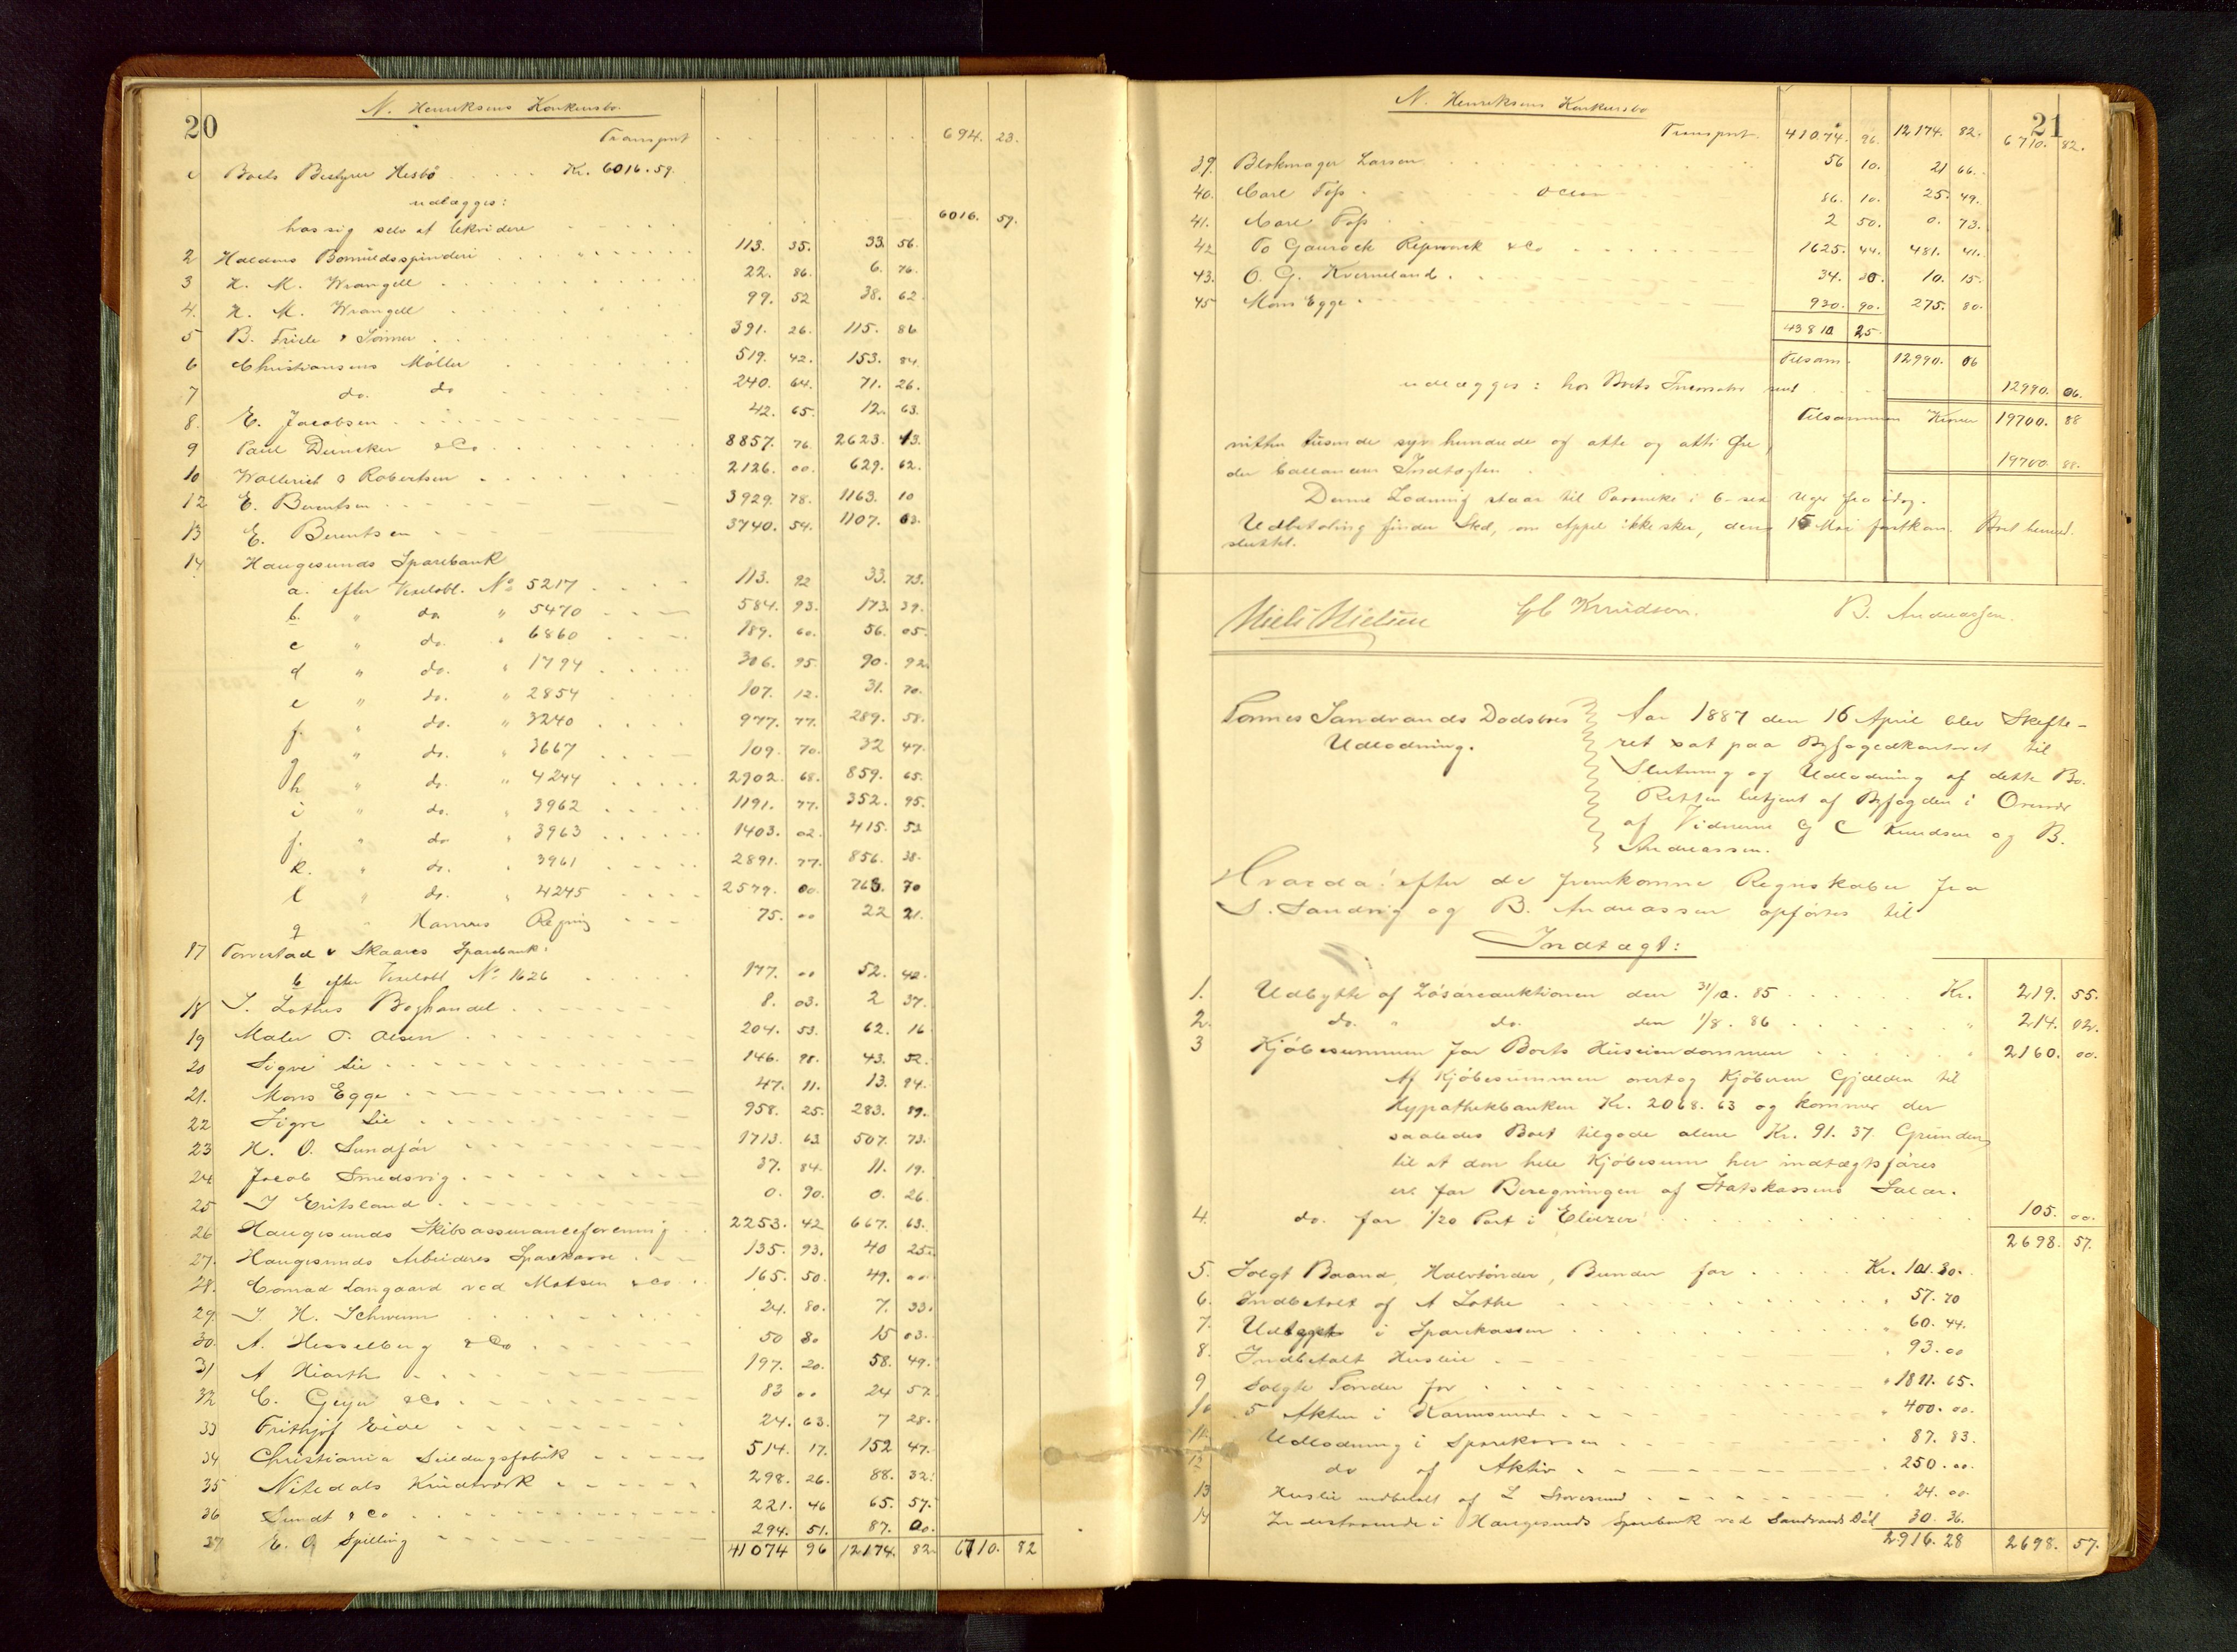 20
N. Henriksens Konkursbo.
Transport 694. 23.
c Boets Bestyrer Hesbö Kr. 6016.59.
udlægges:
hos sig selv at likvidere 6016. 59.
2 Haldens Bomuldsspinderi 113. 35. 33. 56.
3 H. M. Wrangell 22. 86. 6. 76.
4. H. M. Wrangell 99. 52 38. 62
5 B. Friele & Sönner 391. 26. 115. 86
6 Christiansens Mölle 519. 42. 153. 84.
7 do. do 240. 64. 71. 26.
8. E. Jacobsen 42. 65. 12. 63.
9 Paul Duncker & Co 8857. 76. 2623. 13.
10 Wallerich & Robertsen 2126. 00. 629. 62.
12 E. Berentsen 3929. 78. 1163. 10
13 E. Berentsen 3740. 54. 1107. 63.
14 Haugesunds Sparebank
a. efter Vexelobl. No 5217 113. 92 33. 73.
b. " do " 5470 584. 93. 173. 39.
c " do. " 6860 189. 60. 56. 05.
d " do. " 1794 306. 95. 90. 92.
e " do. " 2854 107. 12. 31. 70.
f. " do. " 3240 977. 77. 289. 58.
g " do. " 3667 109. 70. 32 47.
h " do. " 4244 2902. 68. 859. 65.
i " do. " 3962 1191. 77. 352. 95.
j. " do " 3963 1403. 02. 415. 53
k. " do. " 3961 2891. 77. 856. 38.
l " do. " 4245 2579. 00. 763. 70
q " Hannes Regning 75. 00 22 21.
17 Torvestad & Skaares Sparebank:
b efter Vexelobl No 1626 177. 00 52. 42.
18 J. Lothes Boghandel 8. 03. 2 37.
19 Maler O. Olsen 204. 53. 62. 16
20 Sigve Lie 146. 98. 43. 52.
21. Mons Egge 47. 11. 13. 94.
22 Sigve Lie 958. 25. 283. 89.
23 H. O. Sundför 1713. 63. 507. 73.
24 Jacob Smedsvig 37. 84. 11. 19.
25 J Eritsland 0. 90. 0. 26.
26 Haugesunds Skibsassuranceforening 2253. 42 667. 63.
27. Haugesunds Arbeideres Sparekasse 135. 93. 40 25.
28. Conrad Langaard ved Matsen & Co 165. 50. 49. 00
29. J. H. Schwenn 24. 80. 7. 33.
30. A. Hesselberg & Co 50 80 15 03.
31 A Hiorth 197. 20. 58. 49.
32 C. Geyer & Co 83 00 24 57.
33 Frithjof Eide 24. 63. 7 28.
34 Christiania Seildugsfabrik 514. 17. 152 47.
35 Nitedals Krudtværk 298. 26. 88. 32.
36 Sundt & Co 221. 46 65. 57.
37 E. O. Spilling 294. 51. 87. 20.
41074 96 12174. 82. 6710. 82
21
N. Henriksens Konkursbo
Transport. 41074. 96. 12174. 82. 6710. 82.
39. Blokmager Larsen 56 10. 21 66.
40. Carl Fos 86. 10. 25. 49.
41. Carl Fos 2 50. 0. 73.
42 To Gaurock Repwork & Co 1625. 44. 481. 41.
43. O. G. Kverneland 34. 30. 10. 15.
45 Mons Egge 930. 90. 275. 80.
43810 25.
Tilsam. 12990. 06
udlægges: hos Boets Incassator 12990. 06.
Tilsammen Kroner 19700. 88
nitten tusende syv hundrede og otte og otti Øre,
der ballancerer Indtægten 19700. 88.
Denne Lodning staar til Paaanke i 6-sex Uger fra idag.
Udbetaling finder Sted, om Appel ikke sker, den 15 Mai förstkom. Boet hermed
sluttet.
Niels Nielsen G C Knudsen. B. Andreassen.
Tonnes Sandvands Dødsboes
Udlodning.
Aar 1887 den 16 April blev Skifte-
ret sat paa Byfogedkontoret til
Slutning og Udlodning af dette Bo.
Retten betjent af Byfogden i Overvær
af Vidnerne G C Knudsen og B.
Andreassen.
Hvorda: efter de fremkomne Regnskaber fra
S. Sandvig og B. Andreassen opførtes til
Indtægt:
1. Udbytte af Lösöreauktionen den 31/10. 85 Kr. 219. 55.
2. do. " do. den 1/8. 86 " 214. 02.
3 Kjöbesummen for Boets Huseiendommen " 2160. 00.
Af Kjöbesummen overtog Kjöberen Gjælden til
Hypothekbanken Kr. 2068.63 og kommer der
saaledes Boet tilgode alene Kr. 91.37. Grunden
til at den hele Kjöbesum her indtægtsföres
er for Beregningen af Statskassens Salær.
4. do. for 1/20 Part i Eliezer 105. 00.
2698. 57.
5. Solgt Baand, Halvtönder, Bunder for Kr. 101.30.
6. Indbetalt af A Lothe " 57.70
7. Udlagt i Sparekassen " 60.44.
8. Indbetalt Husleie " 93.00
9 Solgte Tönder for " 1811.65.
10 5 Aktier i Karmsund " 400.00.
11. Udlodning i Sparekassen " 87.83.
12 do af Aktiv " 250.00.
13 Husleie indbetalt af L Storesund " 24.00.
14 Indestaaende i Haugesunds Sparebank ved Sandvands Död 30.36.
2916.28 2698. 57.